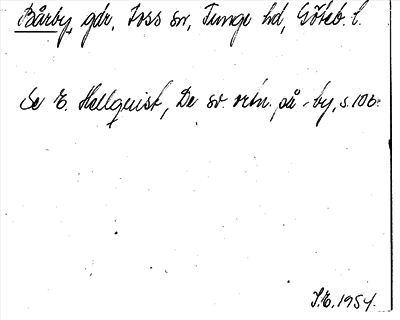 Bårby, gdr, Foss sn, Tunge hd, Göteb. l.
Se E. Hellquist, De sv. ortn. på -by, s. 10
1954.